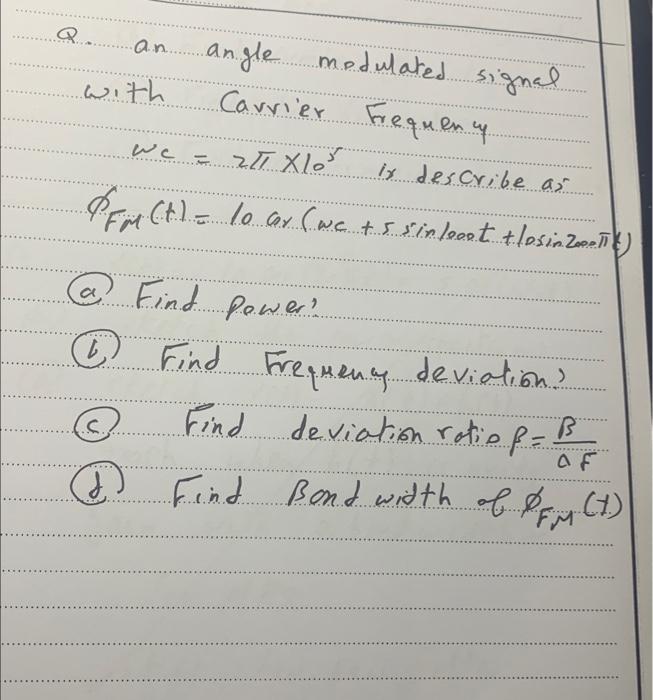 Q. an angle modulated signal
with Carrier Frequency
wc = 2π X10⁵ is describe as
ϕFM(t) = 10 cos (wc + 5 sin 1000t + 10 sin 2000πt)
(a) Find power?
(b) Find Frequency deviation?
(c) Find deviation ratio β = B/ΔF
(d) Find Bandwidth of ϕFM(t)